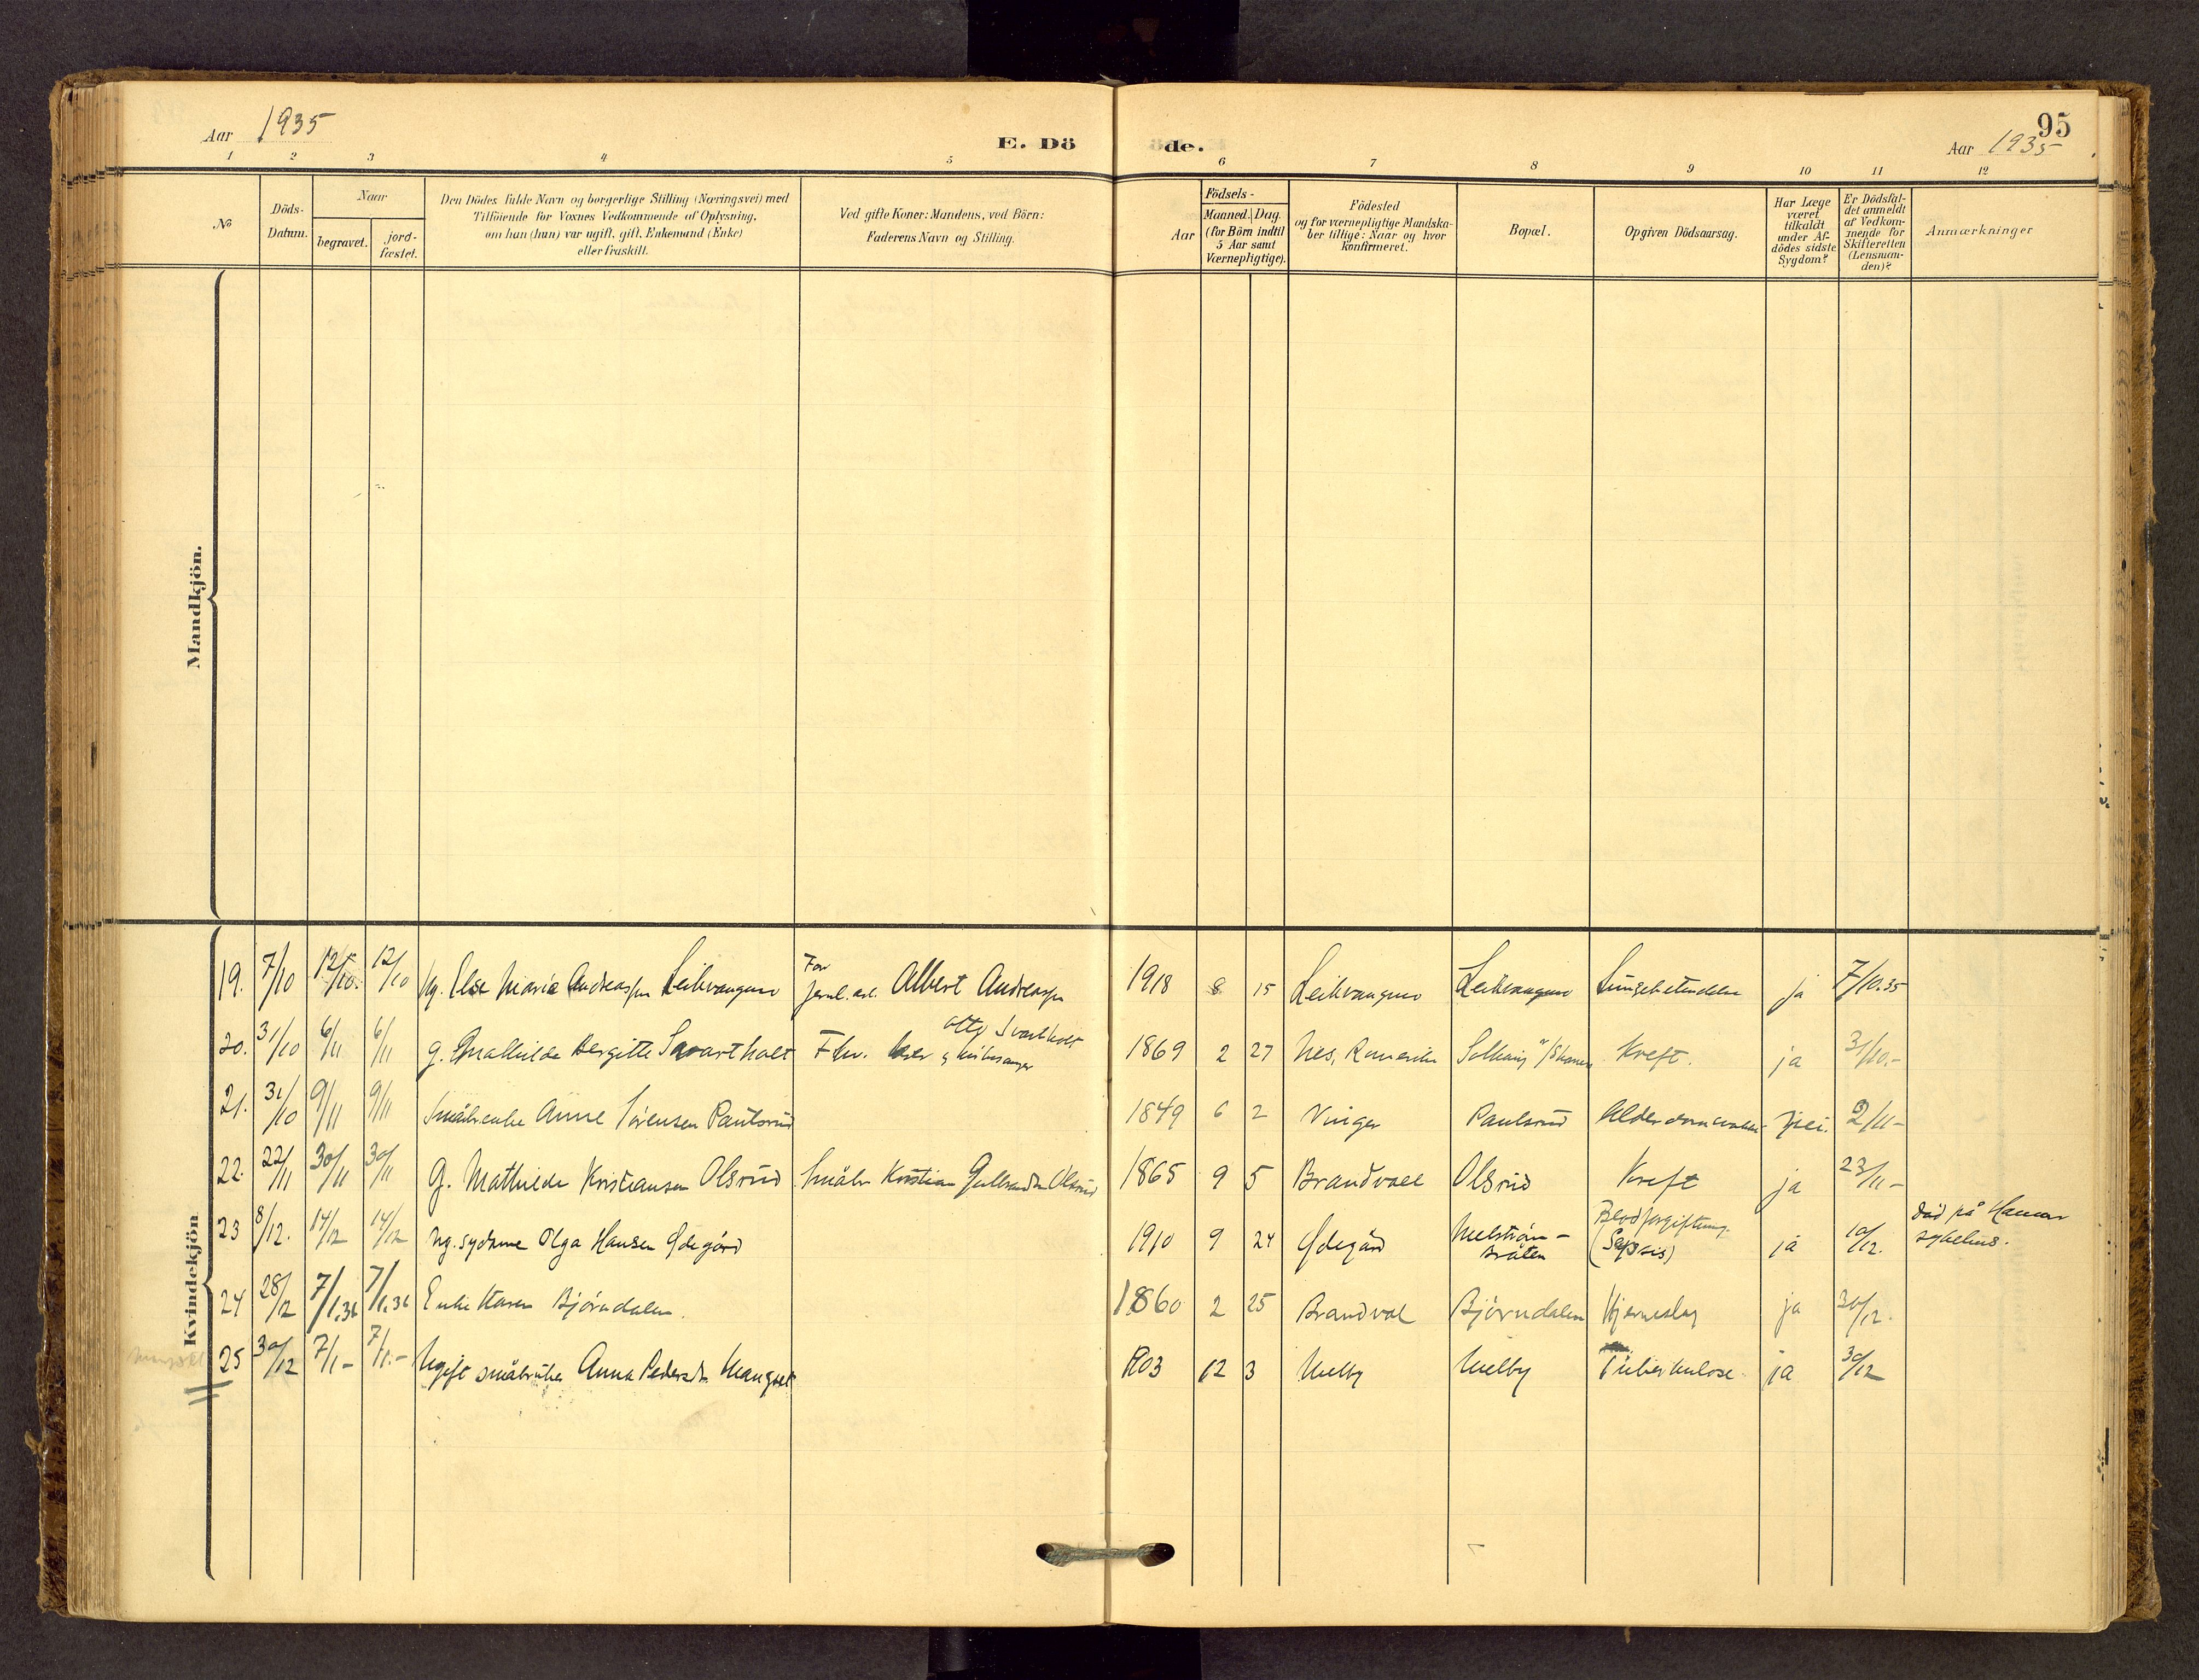 Aar 1935
E. Dö
de.
95
Aar 1935
1 2 3 4 5 6 7 8 9 10 11 12
No
Döds-
Datum.
Naar
begravet.
jord-
fæstet.
Den Dödes fulde Navn og borgerlige Stilling (Næringsvei) med
Tilföiende for Voxnes Vedkommende af Oplysning,
om han (hun) var ugift, gift, Enkemand (Enke)
eller fraskilt.
Ved gifte Koner: Mandens, ved Börn:
Faderens Navn og Stilling.
Aar
Födsels-
Maaned. Dag.
(for Börn indtil
5 Aar samt
Værnepligtige).
Födested
og for værnepligtige Mandska-
ber tillige: Naar og hvor
konfirmeret.
Bopæl.
Opgiven Dödsaarsag.
Har Læge
været
tilkaldt
under Af-
dödes sidste
Sygdom?
Er Dödsfal-
det anmeldt
af Vedkom-
mende for
Skifteretten
(Lensman-
den)?
Anmærkninger
Mandkjön.
Kvindekjön
19. 7/10 12/10. 12/10 Ug. Else Marie Andreassen Leikvangmo Far jernb.arb. Albert Andreassen 1918 8 15 Leikvangmo Leikvangmo Lungebetendelse ja 7/10.35
20. 31/10 6/11 6/11 g. Mathilde Bergitte Svartholt Fhv. lærer & kirkesanger Otto Svartholt 1869 2 27 Nes, Romerike Solhaug Kreft. ja 31/10.-
21. 31/10 9/11 9/11 Småbr.enke Anne Sörensen Paulsrud 1849 6 2 Vinger Paulsrud nei. 2/11-
22. 22/11 30/11 30/11 G. Mathilde Kristiansen Olsrud Småbr Kristian Gulbrandsen Olsrud 1865 9 5 Brandvall Olsrud Kreft ja 23/11-
23 8/12. 14/12 14/12 ug. sydame Olga Hansen Ødegård 1910 9 24 Ødegård Melström-
bråten Blodforgiftning.
(Sepsis) ja 10/12. död på Hamar
sykehus.
24 28/12 7/1.36 7/1.36 Enke Karen Björndalen. 1860 2 25 Brandval Björndalen Hjerneslag ja 30/12.
25 30/12 7/1- 7/1.- Ugift småbruker Anna Pedersdtr. Mangset 1903 12 3 Melby Melby Tuberkulose ja 30/12